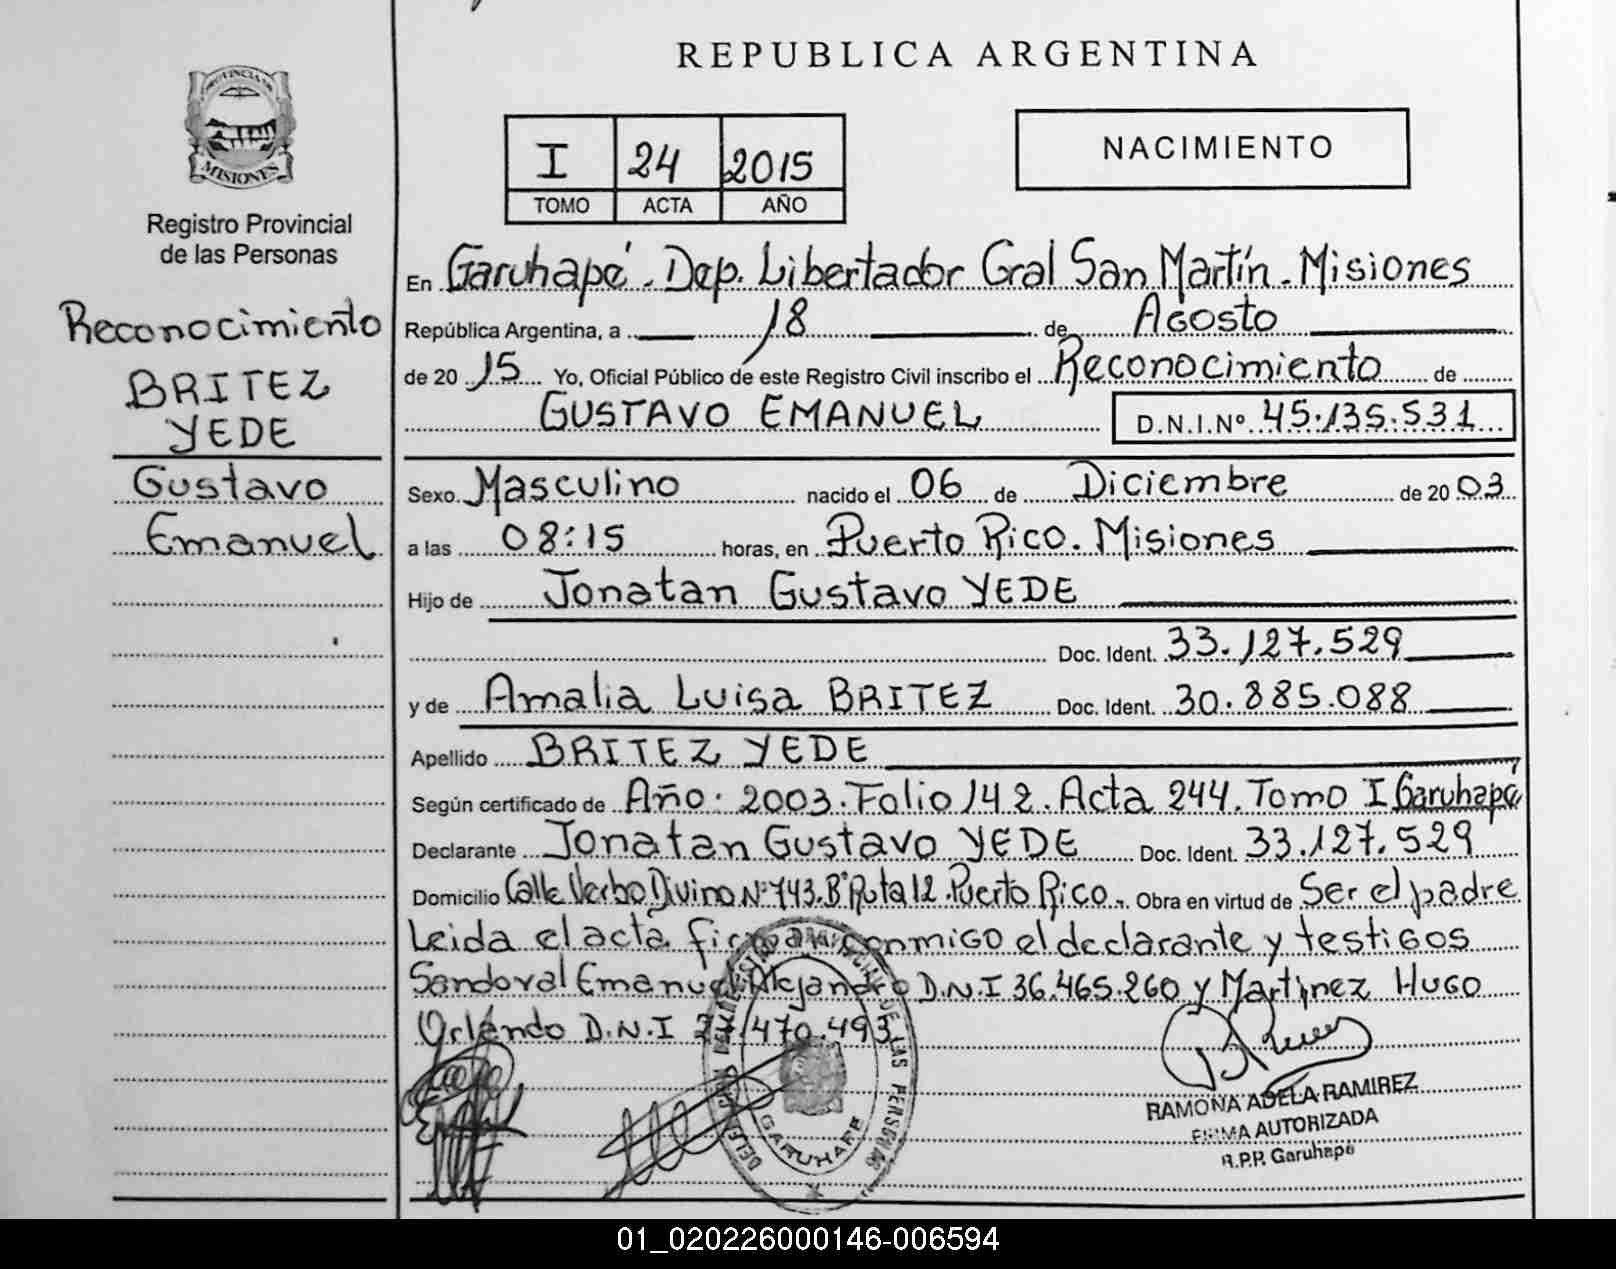 REPUBLICA ARGENTINA
PROVINCIA DE
MISIONES
Registro Provincial
de las Personas
I 24 2015
TOMO ACTA AÑO
NACIMIENTO
Reconocimiento
BRITEZ
YEDE
Gustavo
Emanuel
En Garuhapé. Dep. Libertador Gral San Martín. Misiones
República Argentina, a 18 de Agosto
de 20 15 Yo, Oficial Público de este Registro Civil inscribo el Reconocimiento de
GUSTAVO EMANUEL D.N.I.Nº 45.135.531
Sexo Masculino nacido el 06 de Diciembre de 20 03
a las 08:15 horas, en Puerto Rico. Misiones
Hijo de Jonatan Gustavo YEDE
Doc. Ident. 33.127.529
y de Amalia Luisa BRITEZ Doc. Ident. 30.885.088
Apellido BRITEZ YEDE
Según certificado de Año: 2003. Folio 142. Acta 244. Tomo I Garuhapé
Declarante Jonatan Gustavo YEDE Doc. Ident. 33.127.529
Domicilio Calle Verbo Divino Nº 743. Bº Ruta 12. Puerto Rico. Obra en virtud de Ser el padre
Leida el acta firman conmigo el declarante y testigos
Sandoval Emanuel Alejandro D.N.I 36.465.260 y Martinez Hugo
Orlando D.N.I 470.493
DEL REGISTRO PROVINCIAL DE LAS PERSONAS
GARUHAPE
RAMONA ADELA RAMIREZ
FIRMA AUTORIZADA
R.P.P. Garuhapé
01_020226000146-006594